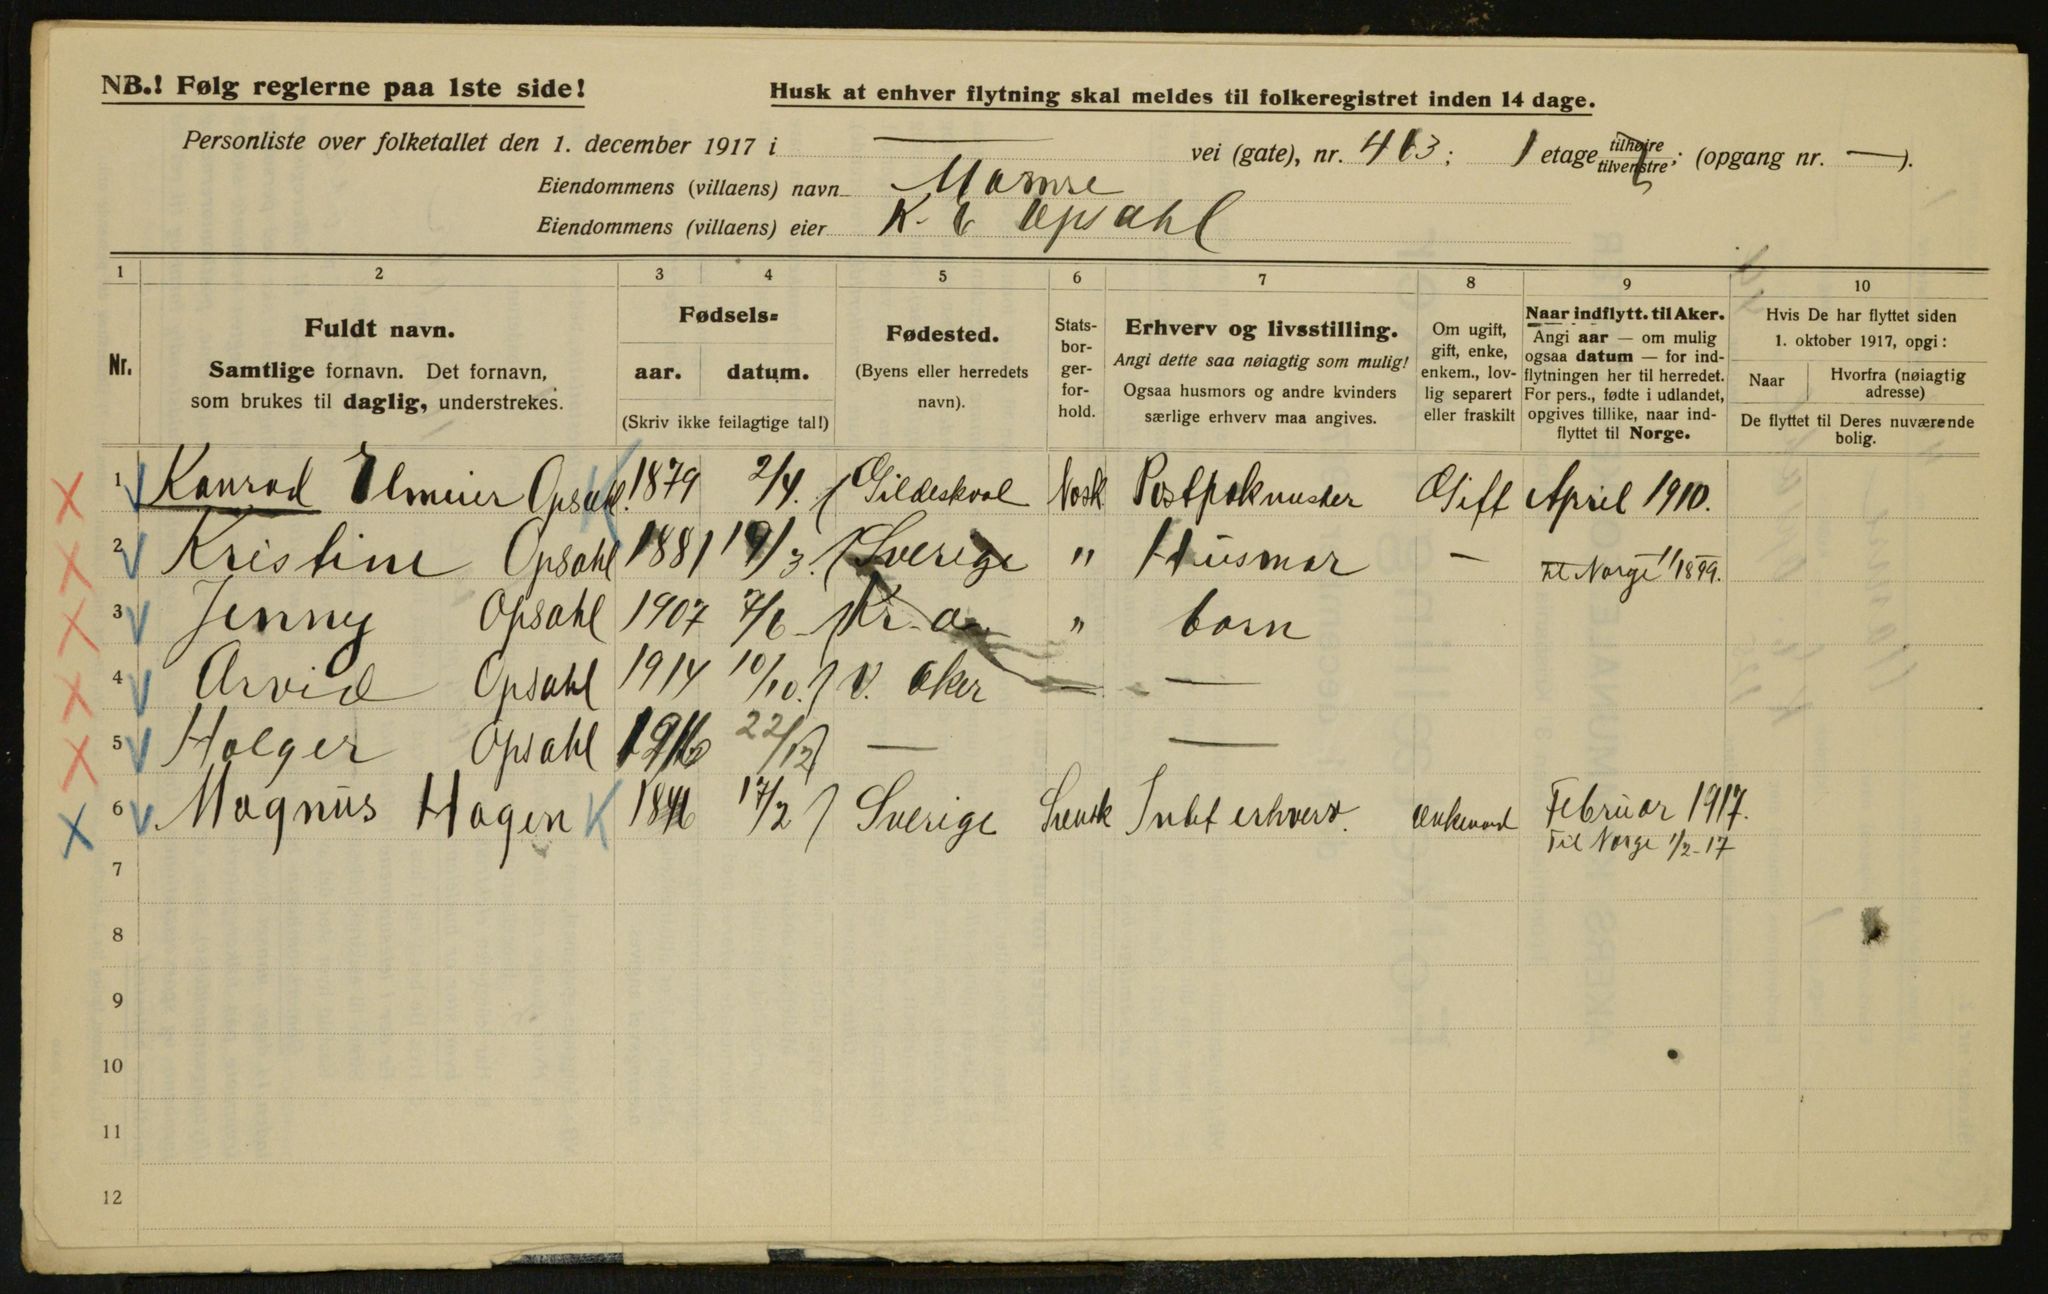 NB.! Følg reglerne paa 1ste side!
Husk at enhver flytning skal meldes til folkeregistret inden 14 dage.
Personliste over folketallet den 1. december 1917 i — vei (gate), nr. 413; 1 etage tilhøire tilvenstre; (opgang nr. —).
Eiendommens (villaens) navn Mamre
Eiendommens (villaens) eier K. E Opsahl
1 2 3 4 5 6 7 8 9 10
Nr.
Fuldt navn.
Samtlige fornavn. Det fornavn,
som brukes til daglig, understrekes.
Fødsels=
aar. datum.
(Skriv ikke feilagtige tal!)
Fødested.
(Byens eller herredets
navn).
Stats-
bor-
ger-
for-
hold.
Erhverv og livsstilling.
Angi dette saa nøiagtig som mulig!
Ogsaa husmors og andre kvinders
særlige erhverv maa angives.
Om ugift,
gift, enke,
enkem., lov-
lig separert
eller fraskilt
Naar indflytt. til Aker.
Angi aar — om mulig
ogsaa datum — for ind-
flytningen her til herredet.
For pers., fødte i udlandet,
opgives tillike, naar ind-
flyttet til Norge.
Hvis De har flyttet siden
1. oktober 1917, opgi:
Naar Hvorfra (nøiagtig
adresse)
De flyttet til Deres nuværende
bolig.
1 Konrad Elmeier Opsahl. 1879 2/4. Gildeskaal Nosk Postpakmester Gift April 1910.
2 Kristine Opsahl 1881 19/3. Sverige " Husmor — til Norge 1/11899.
3 Jenny Opsahl 1907 7/6 Kr. a. " barn
4 Arvid Opsahl 1914 10/10. V. Aker — —
5 Holger Opsahl 1916 22/12 — —
6 Magnus Hagen K 1846 17/2 Sverige Svensk Intet erhverv. enkemand Februar 1917.
Til Norge 1/2-17
7
8
9
10
11
12